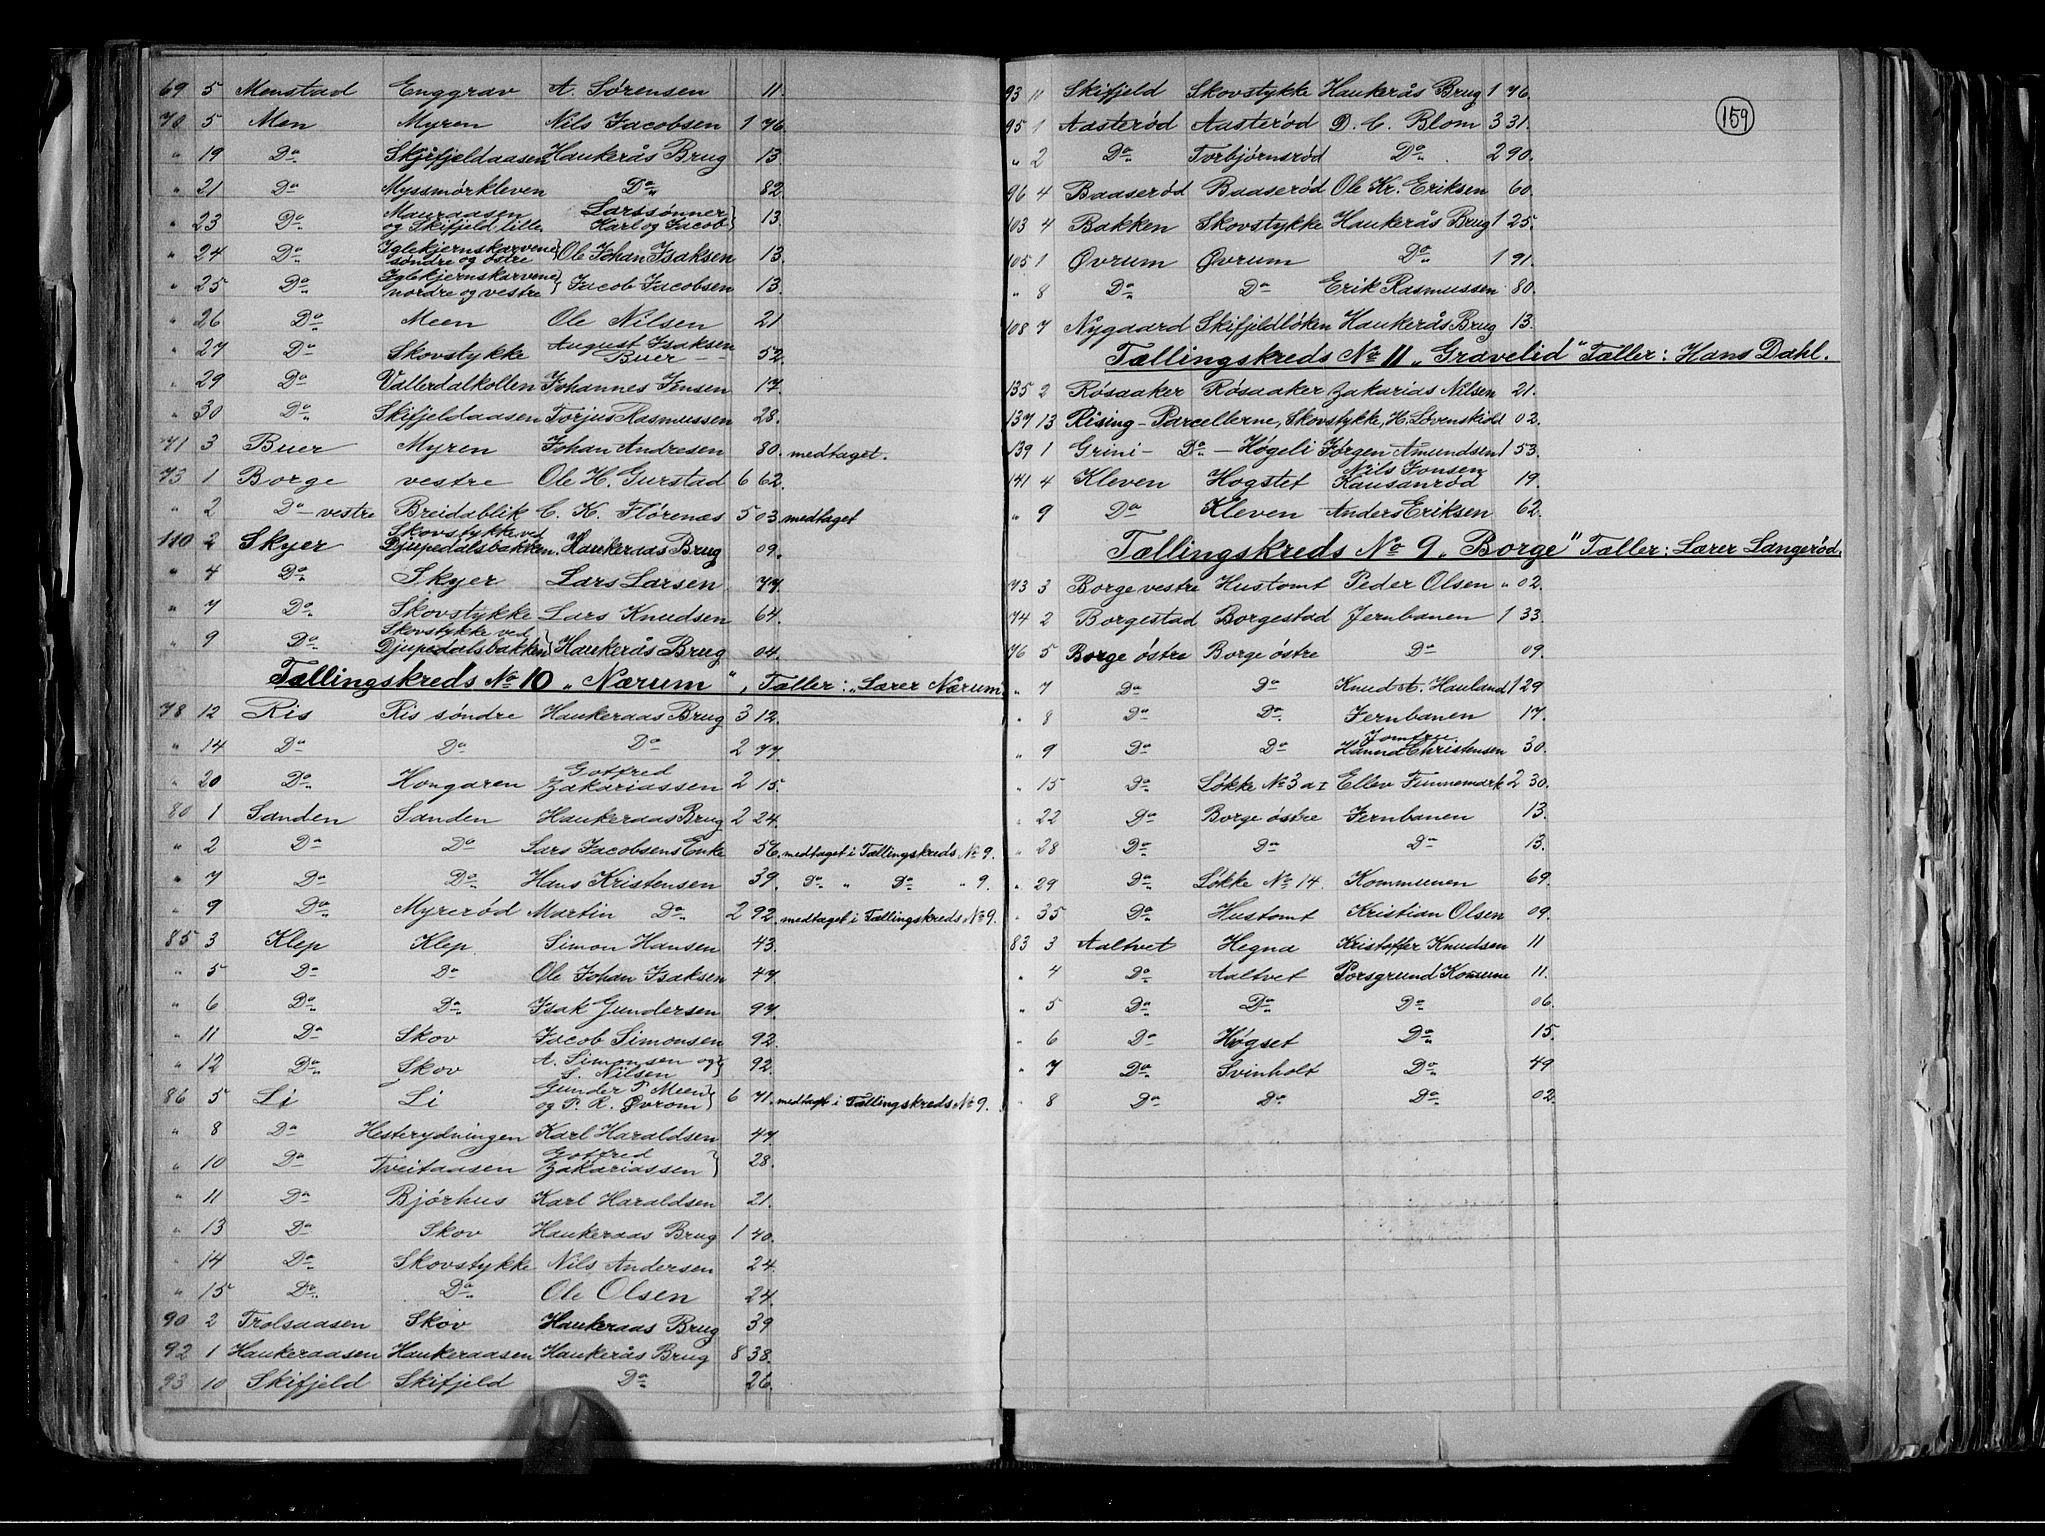 69 5 Menstad Enggrav A. Sørensen 11.
70 5 Men Myren Nils Jacobsen 1 76.
" 19 Do Skifjeldaasen Haukerås Brug 13
" 21 Do Myssmørkleven Do 82.
" 23 Do Mauraasen og Skifjeld lille Larssønner Karl og Jacob } 13.
" 24 Do Iglekjernskarvene søndre og østre } Ole Johan Isaksen 13.
" 25 Do Iglekjernskarvene nordre og vestre } Jacob Jacobsen 13.
" 26 Do Meen Ole Nilsen 21
" 27 Do Skovstykke August Isaksen Buer - - 52.
" 29 Do Vallerdalkollen Johannes Jensen 17.
" 30 Do Skifjeldaasen Torjus Rasmussen 28.
71 3 Buer Myren Johan Andresen 80. medtaget.
73 1 Borge vestre Ole H. Gurstad 6 62.
" 2 Do vestre Breidablik C. K. Flørenæs 5 03. medtaget
110 2 Skyer Skovstykke ved Djupedalsbakken. Haukeraas Brug 09.
" 4 Do Skyer Lars Larsen 77.
" 7 Do Skovstykke Lars Knudsen 64.
" 9 Do Skovstykke ved Djupedalsbakken } Haukerås Brug 04.
Tællingskreds No 10 „Nærum", Tæller: „Lærer Nærum.
78 12 Ris Ris søndre Haukeraas Brug 3 12.
" 14 Do Do Do 2 77.
" 20 Do Hongaren Gotfred Zakariassen 2 15.
80 1 Sanden Sanden Haukeraas Brug 2 24.
" 2 Do Do Lars Jacobsens Enke 56. medtaget i Tællingskreds No 9.
" 7 Do Do Hans Kristensen 39. Do " Do " 9.
" 9 Do Myrerød Martin Do 2 92. medtaget i Tællingskreds No 9.
85 3 Klep Klep Simon Hansen 43.
" 5 Do Do Ole Johan Isaksen 47.
" 6 Do Do Isak Gundersen 97.
" 11 Do Skov Jacob Simonsen 92.
" 12 Do Skov A. Simonsen og S. Nilsen } 92.
86 5 Li Li Gunder P. Meen og P. R. Øvrom } 6 71. medtaget i Tællingskreds No 9.
" 8 Do Hesterydningen Karl Haraldsen 47.
" 10 Do Tveitaasen Gotfred Zakariassen } 28.
" 11 Do Bjørhus Karl Haraldsen 21.
" 13 Do Skov Haukeraas Brug 1 40.
" 14 Do Skovstykke Nils Andersen 24.
" 15 Do Do Ole Olsen 24.
90 2 Trolsaasen Skov Haukeraas Brug 39
92 1 Haukeraasen Haukeraasen Haukerås Brug 8 38.
93 10 Skifjeld Skifjeld Do 26.
159
93 11 Skifjeld Skovstykke Haukerås Brug 1 76.
95 1 Aasterød Aasterød D. C. Blom 3 31.
" 2 Do Torbjørnsrød Do 2 90.
96 4 Baaserød Baaserød Ole Kr. Eriksen 60.
103 4 Bakken Skovstykke Haukerås Brug 1 25.
105 1 Øvrum Øvrum Do 1 91.
" 8 Do Do Erik Rasmussen 80.
108 7 Nygaard Skifjeldløken Haukerås Brug 13.
Tællingskreds No 11 „Gravelid" Tæller: Hans Dahl.
135 2 Røsaaker Røsaaker Zakarias Nilsen 21.
137 13 Rising - Parcellerne, Skovstykke, H. Løvenskiold 02.
139 1 Grini - Do - Høgeli Jørgen Amundsen 1 53.
141 4 Kleven Hogstet Nils Jonsen Kausanrød 19.
" 9 Do Kleven Anders Eriksen 62.
Tællingskreds No 9 „Borge" Tæller: Lærer Langerød.
73 3 Borge vestre Hustomt Peder Olsen " 02.
74 2 Borgestad Borgestad Jernbanen 1 33.
76 5 Borge østre Borge østre Do 09.
" 7 Do Do Knud A. Hauland 1 29
" 8 Do Do Jernbanen 17.
" 9 Do Do Jomfru Hanna Christensen 30.
" 15 Do Løkke No 3 a I Ellev Finnemark 2 30.
" 22 Do Borge østre Jernbanen 13.
" 28 Do Do Do 13.
" 29 Do Løkke No 14. Kommunen 69.
" 35 Do Hustomt Kristian Olsen 09.
83 3 Aaltvet Hegna Kristoffer Knudsen 11
" 4 Do Aaltvet Porsgrund Komune 11.
" 5 Do Do Do 06.
" 6 Do Høgset Do 15.
" 7 Do Svinholt Do 49
" 8 Do Do Do 02.